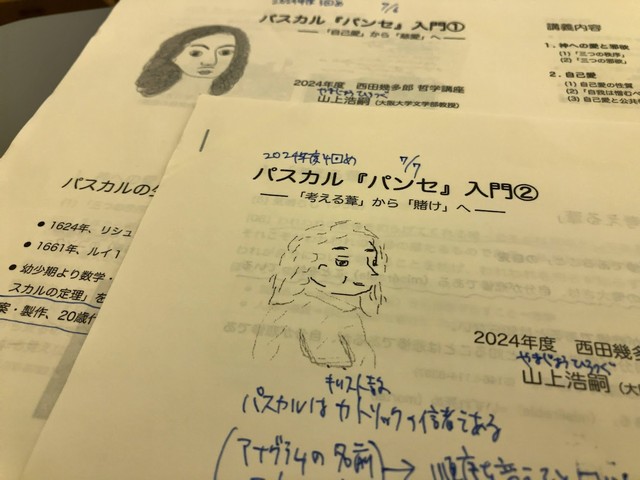 パスカル『パンセ』入門①
──「自己愛」から「慈愛」へ──
2024年度 西田幾多郎 哲学講座
やまじょうひろつぐ
山上浩嗣（大阪大学文学部教授）
講義内容
1. 神への愛と邪欲
(1)「三つの秩序」
(2)「三つの邪欲」
2. 自己愛
(1) 自己愛の性質
(2)「自我は憎むべ
(3) 自己愛と公共
パスカルの生
● 1624年、リシュ
● 1661年、ルイ1
● 幼少期より数学・
スカルの定理」を
案・製作、20歳代
2024年度4回め 7/7
パスカル『パンセ』入門②
──「考える葦」から「賭け」へ──
2024年度 西田幾多
やまじょうひろつぐ
山上浩嗣（大
キリスト教
パスカルは カトリックの信者である
アナグラムの名前